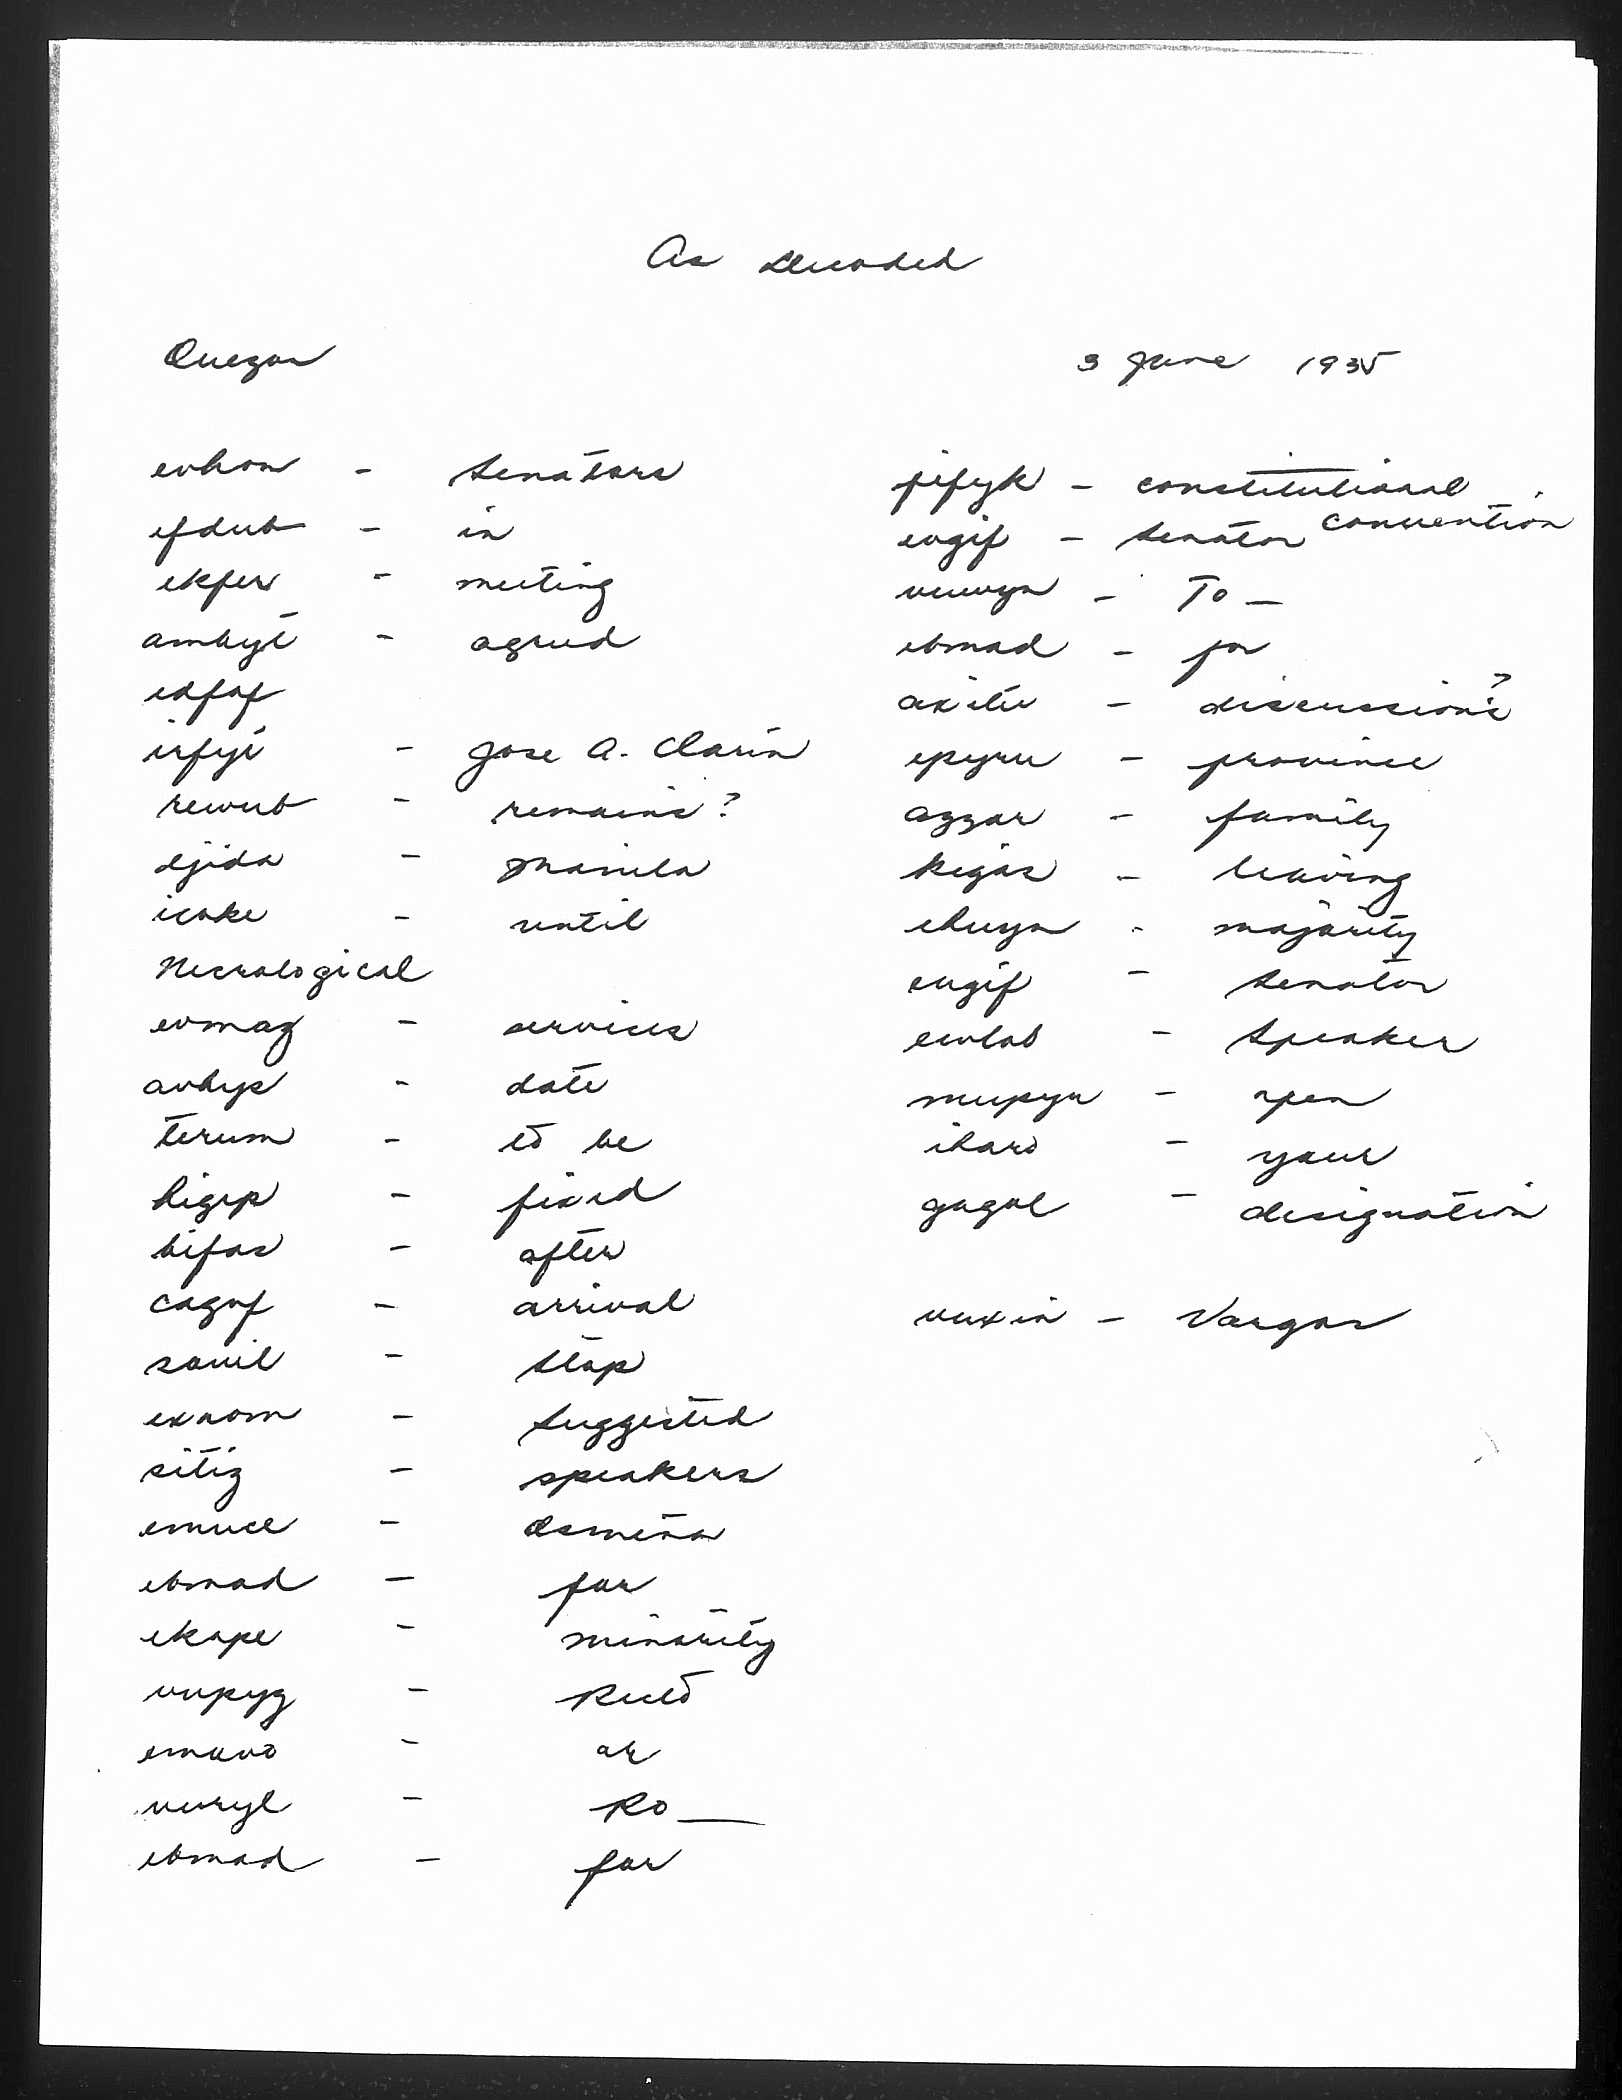 As Decoded
Quezon 3 June 1935
evhon - Senators
efdub - in
ekfex - meeting
amhyt - agreed
edfof
irfyi - Jose A. Clarin
rewub - remains?
djida - Manila
icoke - until
Necrological
evmaz - services
avhyp - date
terum - to be
higep - fixed
hifas - after
cagof - arrival
sovil - stop
exnom - Suggested
sitiz - speakers
emuce - Osmeña
ebmad - for
ekope - minority
vupyg - Recto
emuvo - or
vuryl - Ro__
ebmad - for
jefyk - constitutional convention
evgif - Senator
vuwyn - To _
ebmad - for
axite - discussions?
epyru - province
azzar - family
kejas - leaving
ehuyn - majority
evgif - Senator
ewlab - Speaker
mupyn - open
iharo - your
gogol - designation
vuxia - Vargas